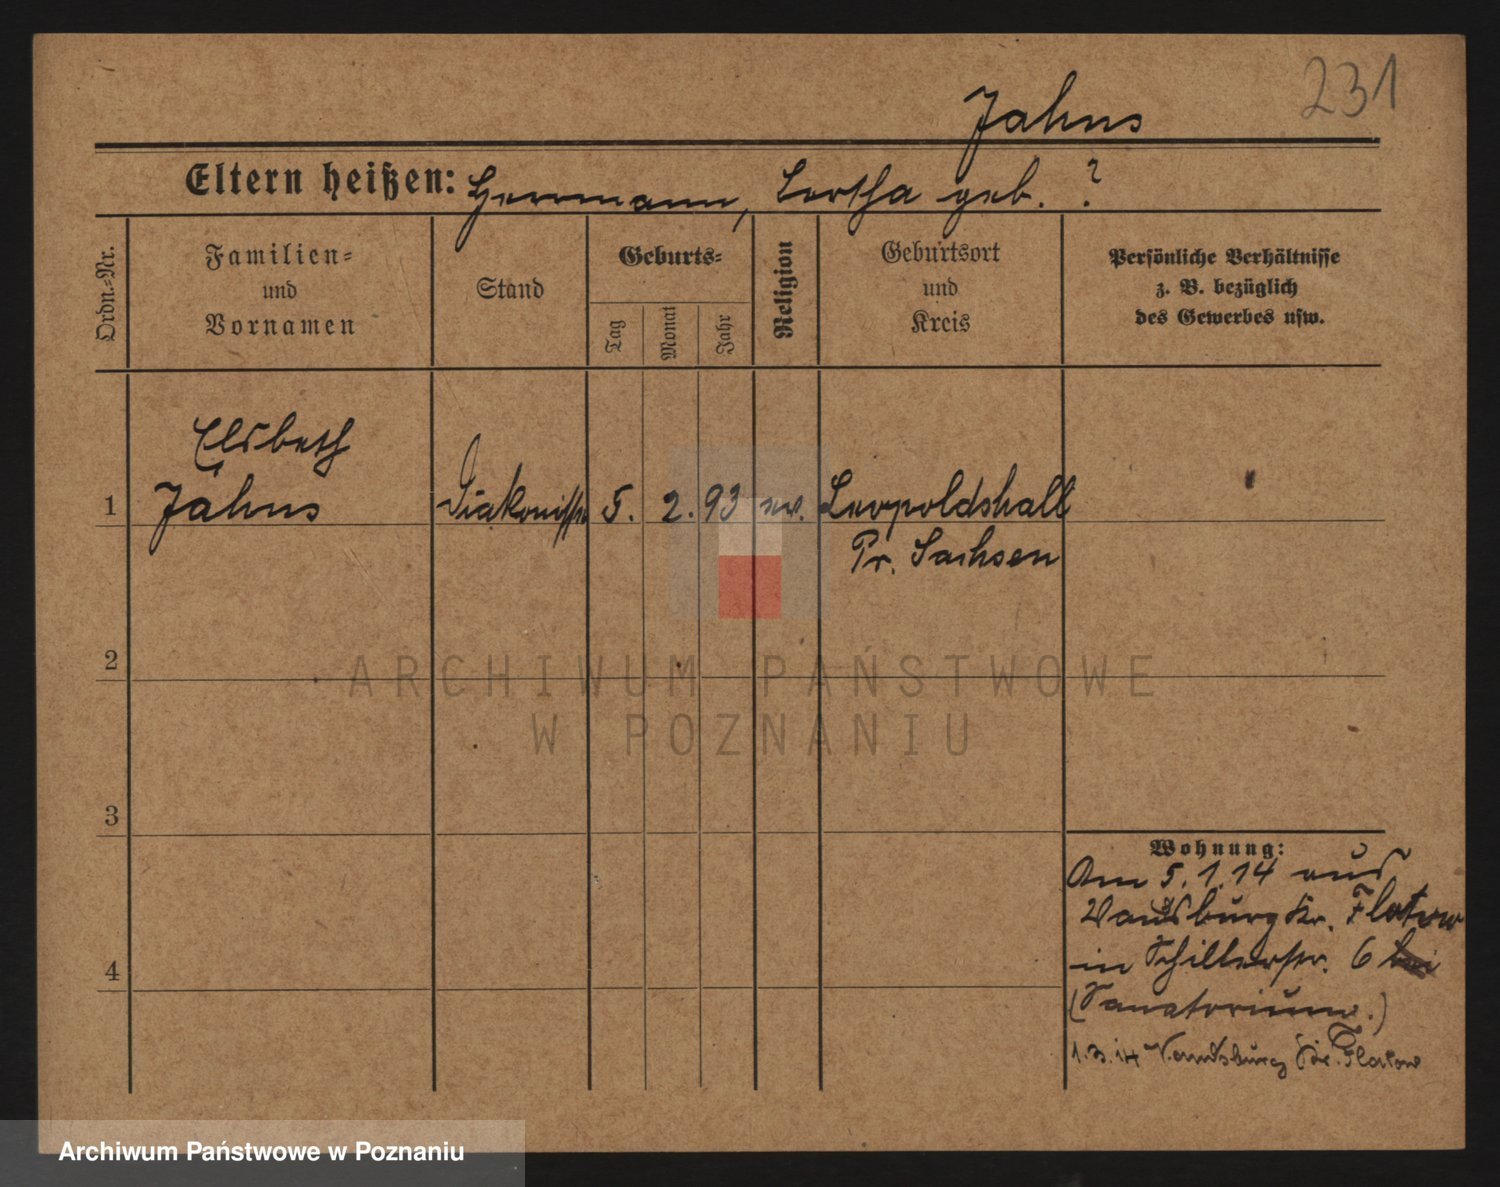 231
Jahns
Eltern heißen: Herrmann, Bertha geb. ?
Ordn.-Nr.
Familien-
und
Vornamen
Stand
Geburts-
Tag
Monat
Jahr
Religion
Geburtsort
und
Kreis
Persönliche Verhältnisse
z. B. bezüglich
des Gewerbes usw.
Elsbeth
1 Jahns Diakonisse 5. 2. 93 ev. Leopoldshall
Pr. Sachsen
2
3
4
Wohnung:
Am 5.1.14 aus
Vandsburg Kr. Flatow
in Schillerstr. 6
(Sanatorium.)
1.3.14 Vandsburg Kr. Flatow
ARCHIWUM PAŃSTWOWE
W POZNANIU
Archiwum Państwowe w Poznaniu